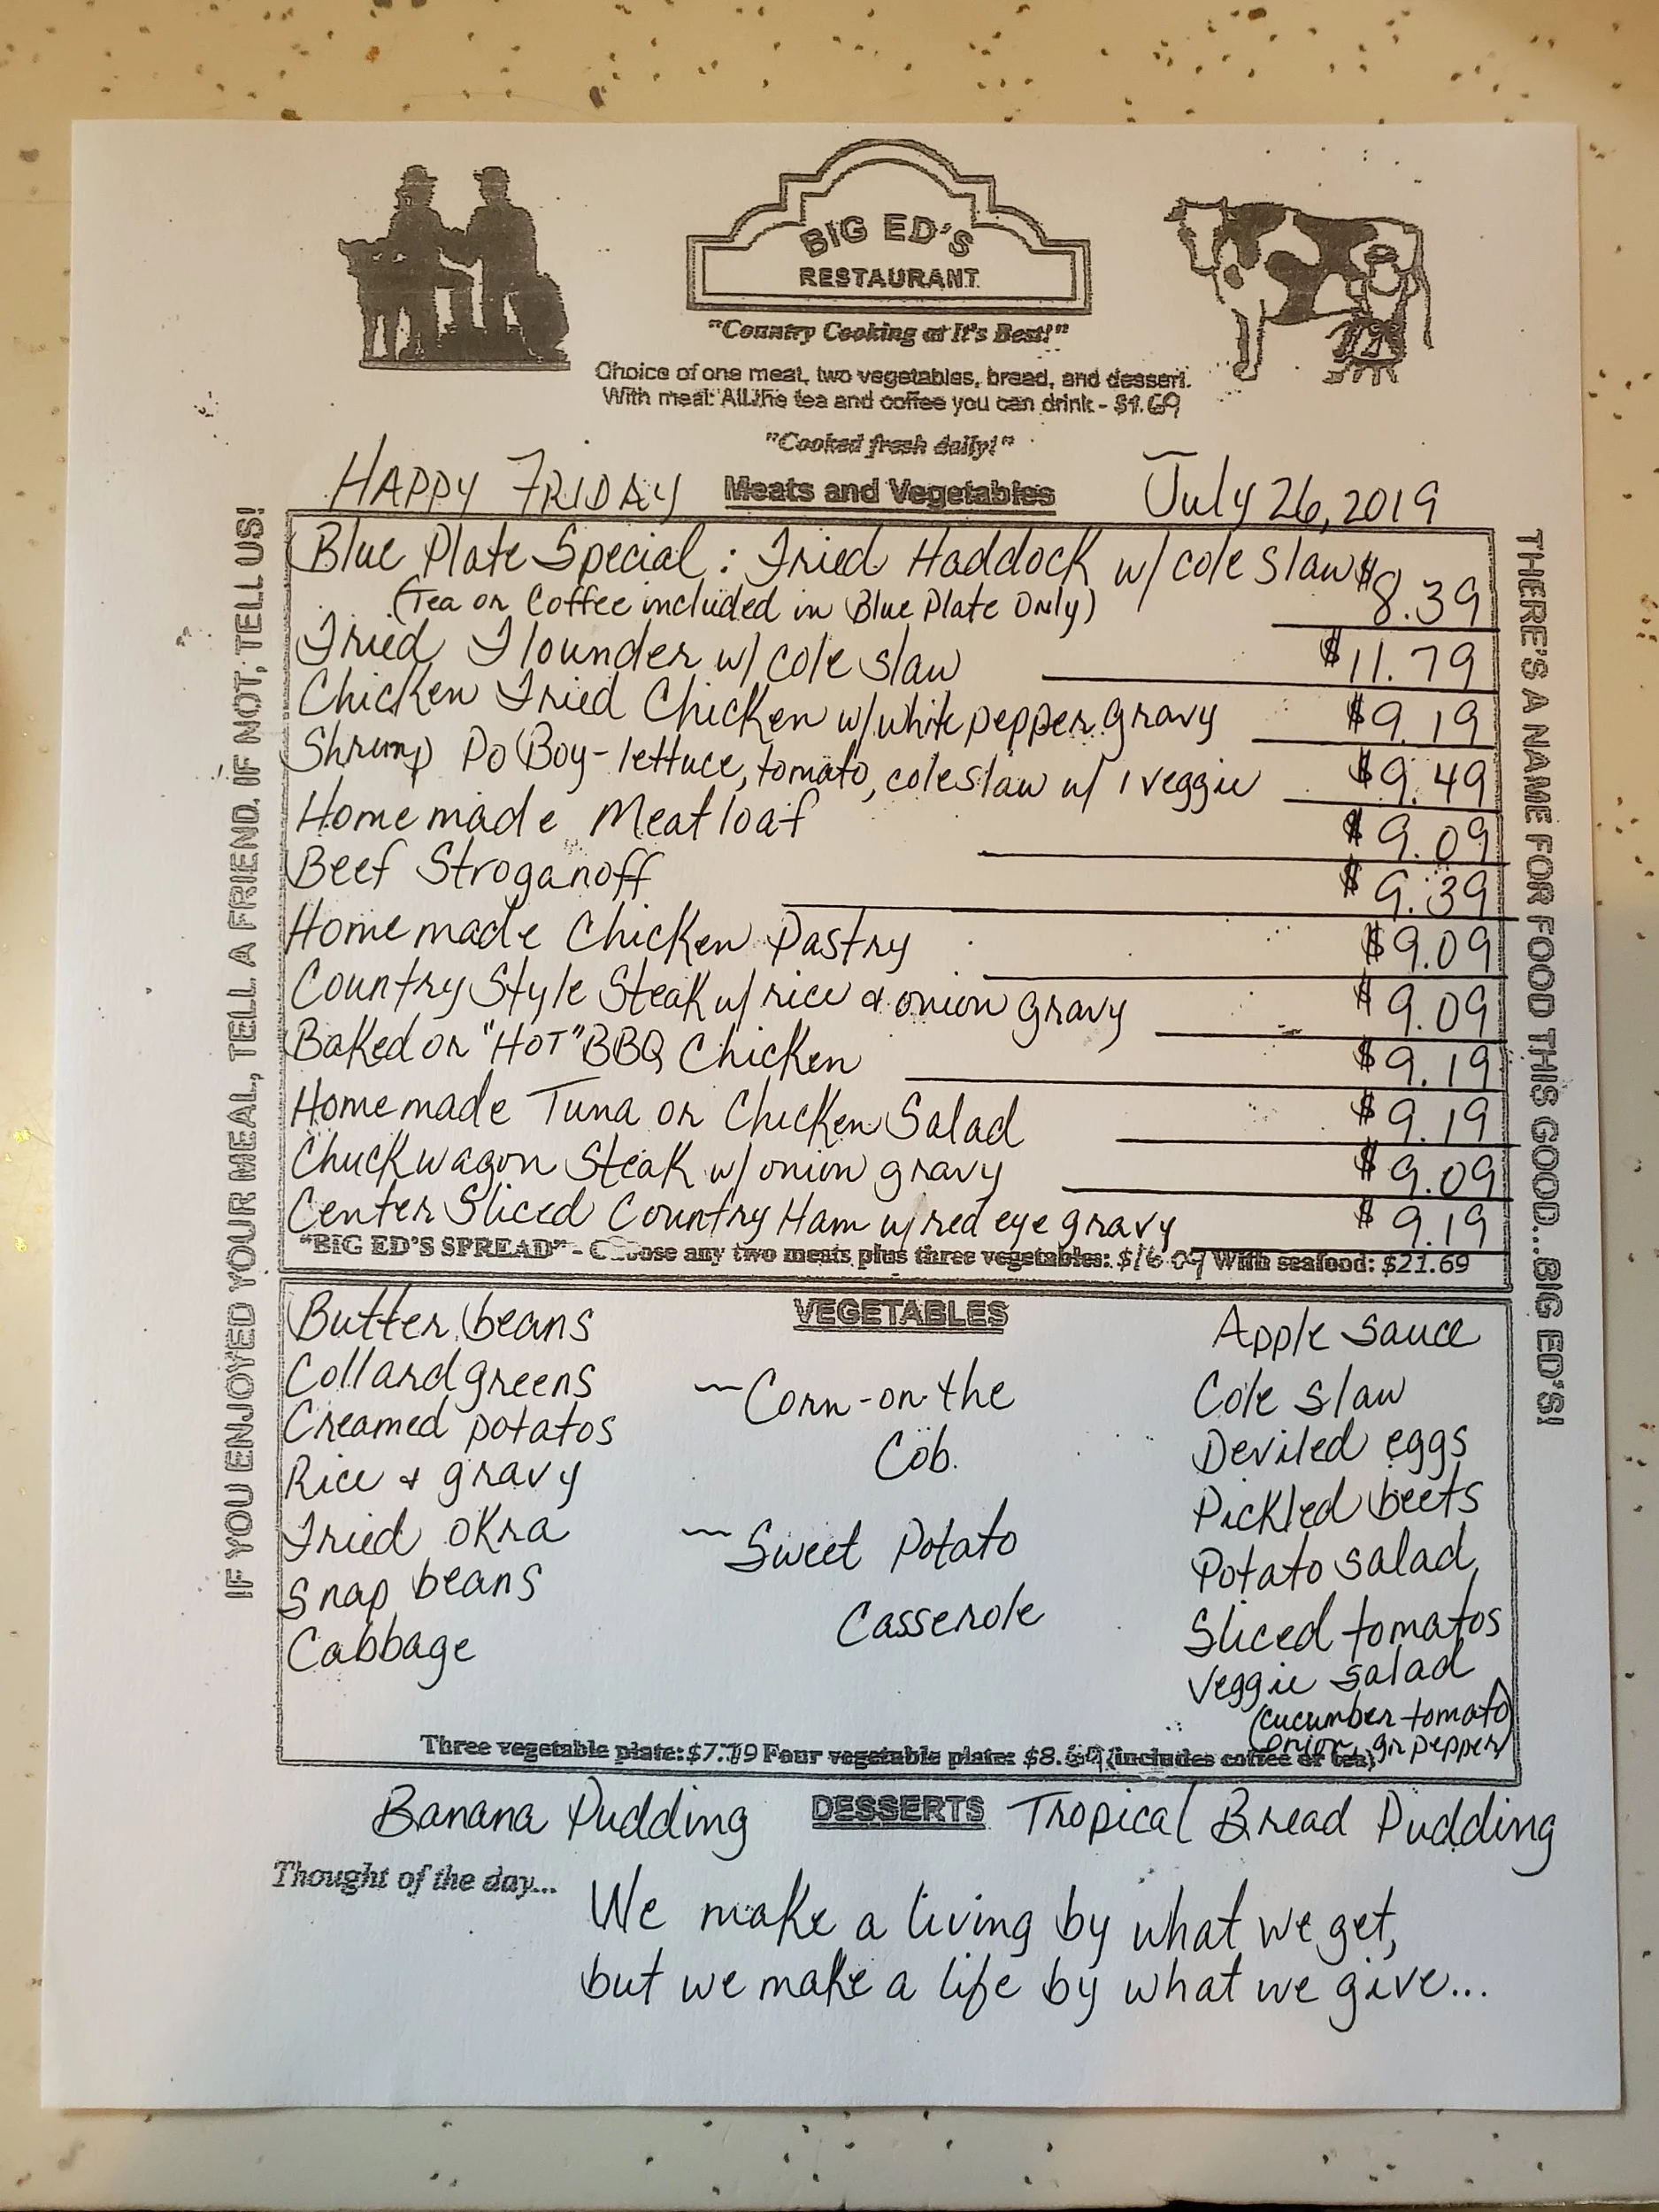 BIG ED'S
RESTAURANT
"Country Cooking at It's Best!"
Choice of one meat, two vegetables, bread, and dessert.
With meal: All the tea and coffee you can drink - $1.69
"Cooked fresh daily!"
HAPPY FRIDAY Meats and Vegetables July 26, 2019
IF YOU ENJOYED YOUR MEAL, TELL A FRIEND. IF NOT, TELL US!
Blue Plate Special : Fried Haddock w/ cole slaw $8.39
(Tea or Coffee included in Blue Plate Only)
Fried Flounder w/ cole slaw $11.79
Chicken Fried Chicken w/ white pepper gravy $9.19
Shrimp Po Boy - lettuce, tomato, coleslaw w/ 1 veggie $9.49
Homemade Meatloaf $9.09
Beef Stroganoff $9.39
Homemade Chicken Pastry $9.09
Country Style Steak w/ rice & onion gravy $9.09
Baked or "HOT" BBQ Chicken $9.19
Homemade Tuna or Chicken Salad $9.19
Chuckwagon Steak w/ onion gravy $9.09
Center Sliced Country Ham w/ red eye gravy $9.19
"BIG ED'S SPREAD" - Choose any two meats plus three vegetables: $16.09 With seafood: $21.69
THERE'S A NAME FOR FOOD THIS GOOD...BIG ED'S!
VEGETABLES
Butter beans
Collard greens
Creamed potatos
Rice & gravy
Fried okra
Snap beans
Cabbage
~Corn-on-the
Cob.
~Sweet Potato
Casserole
Apple Sauce
Cole slaw
Deviled eggs
Pickled beets
Potato salad
Sliced tomatos
Veggie salad
(cucumber tomato
onion, gr pepper)
Three vegetable plate: $7.79 Four vegetable plate: $8. (includes coffee or tea)
Banana Pudding DESSERTS Tropical Bread Pudding
Thought of the day...
We make a living by what we get,
but we make a life by what we give...